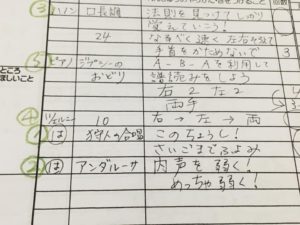 ③ ハノン 口長調 法則を見つけ?しのり
覚えていこう!
24 なるべく速く左右を使って
手首をかためないで
⑤ ピアノ ジプシーの A-B-Aを利用して
おどり 譜読みをしよう
ところ
ましいこと
右2 左2
両手
④ ツェルニー 10 右→左→両
① ほ 狩人の合唱 このちょうし!
さいごまでふよみ
② ほ アンダルーサ 内声を弱く!
めっちゃ弱く!